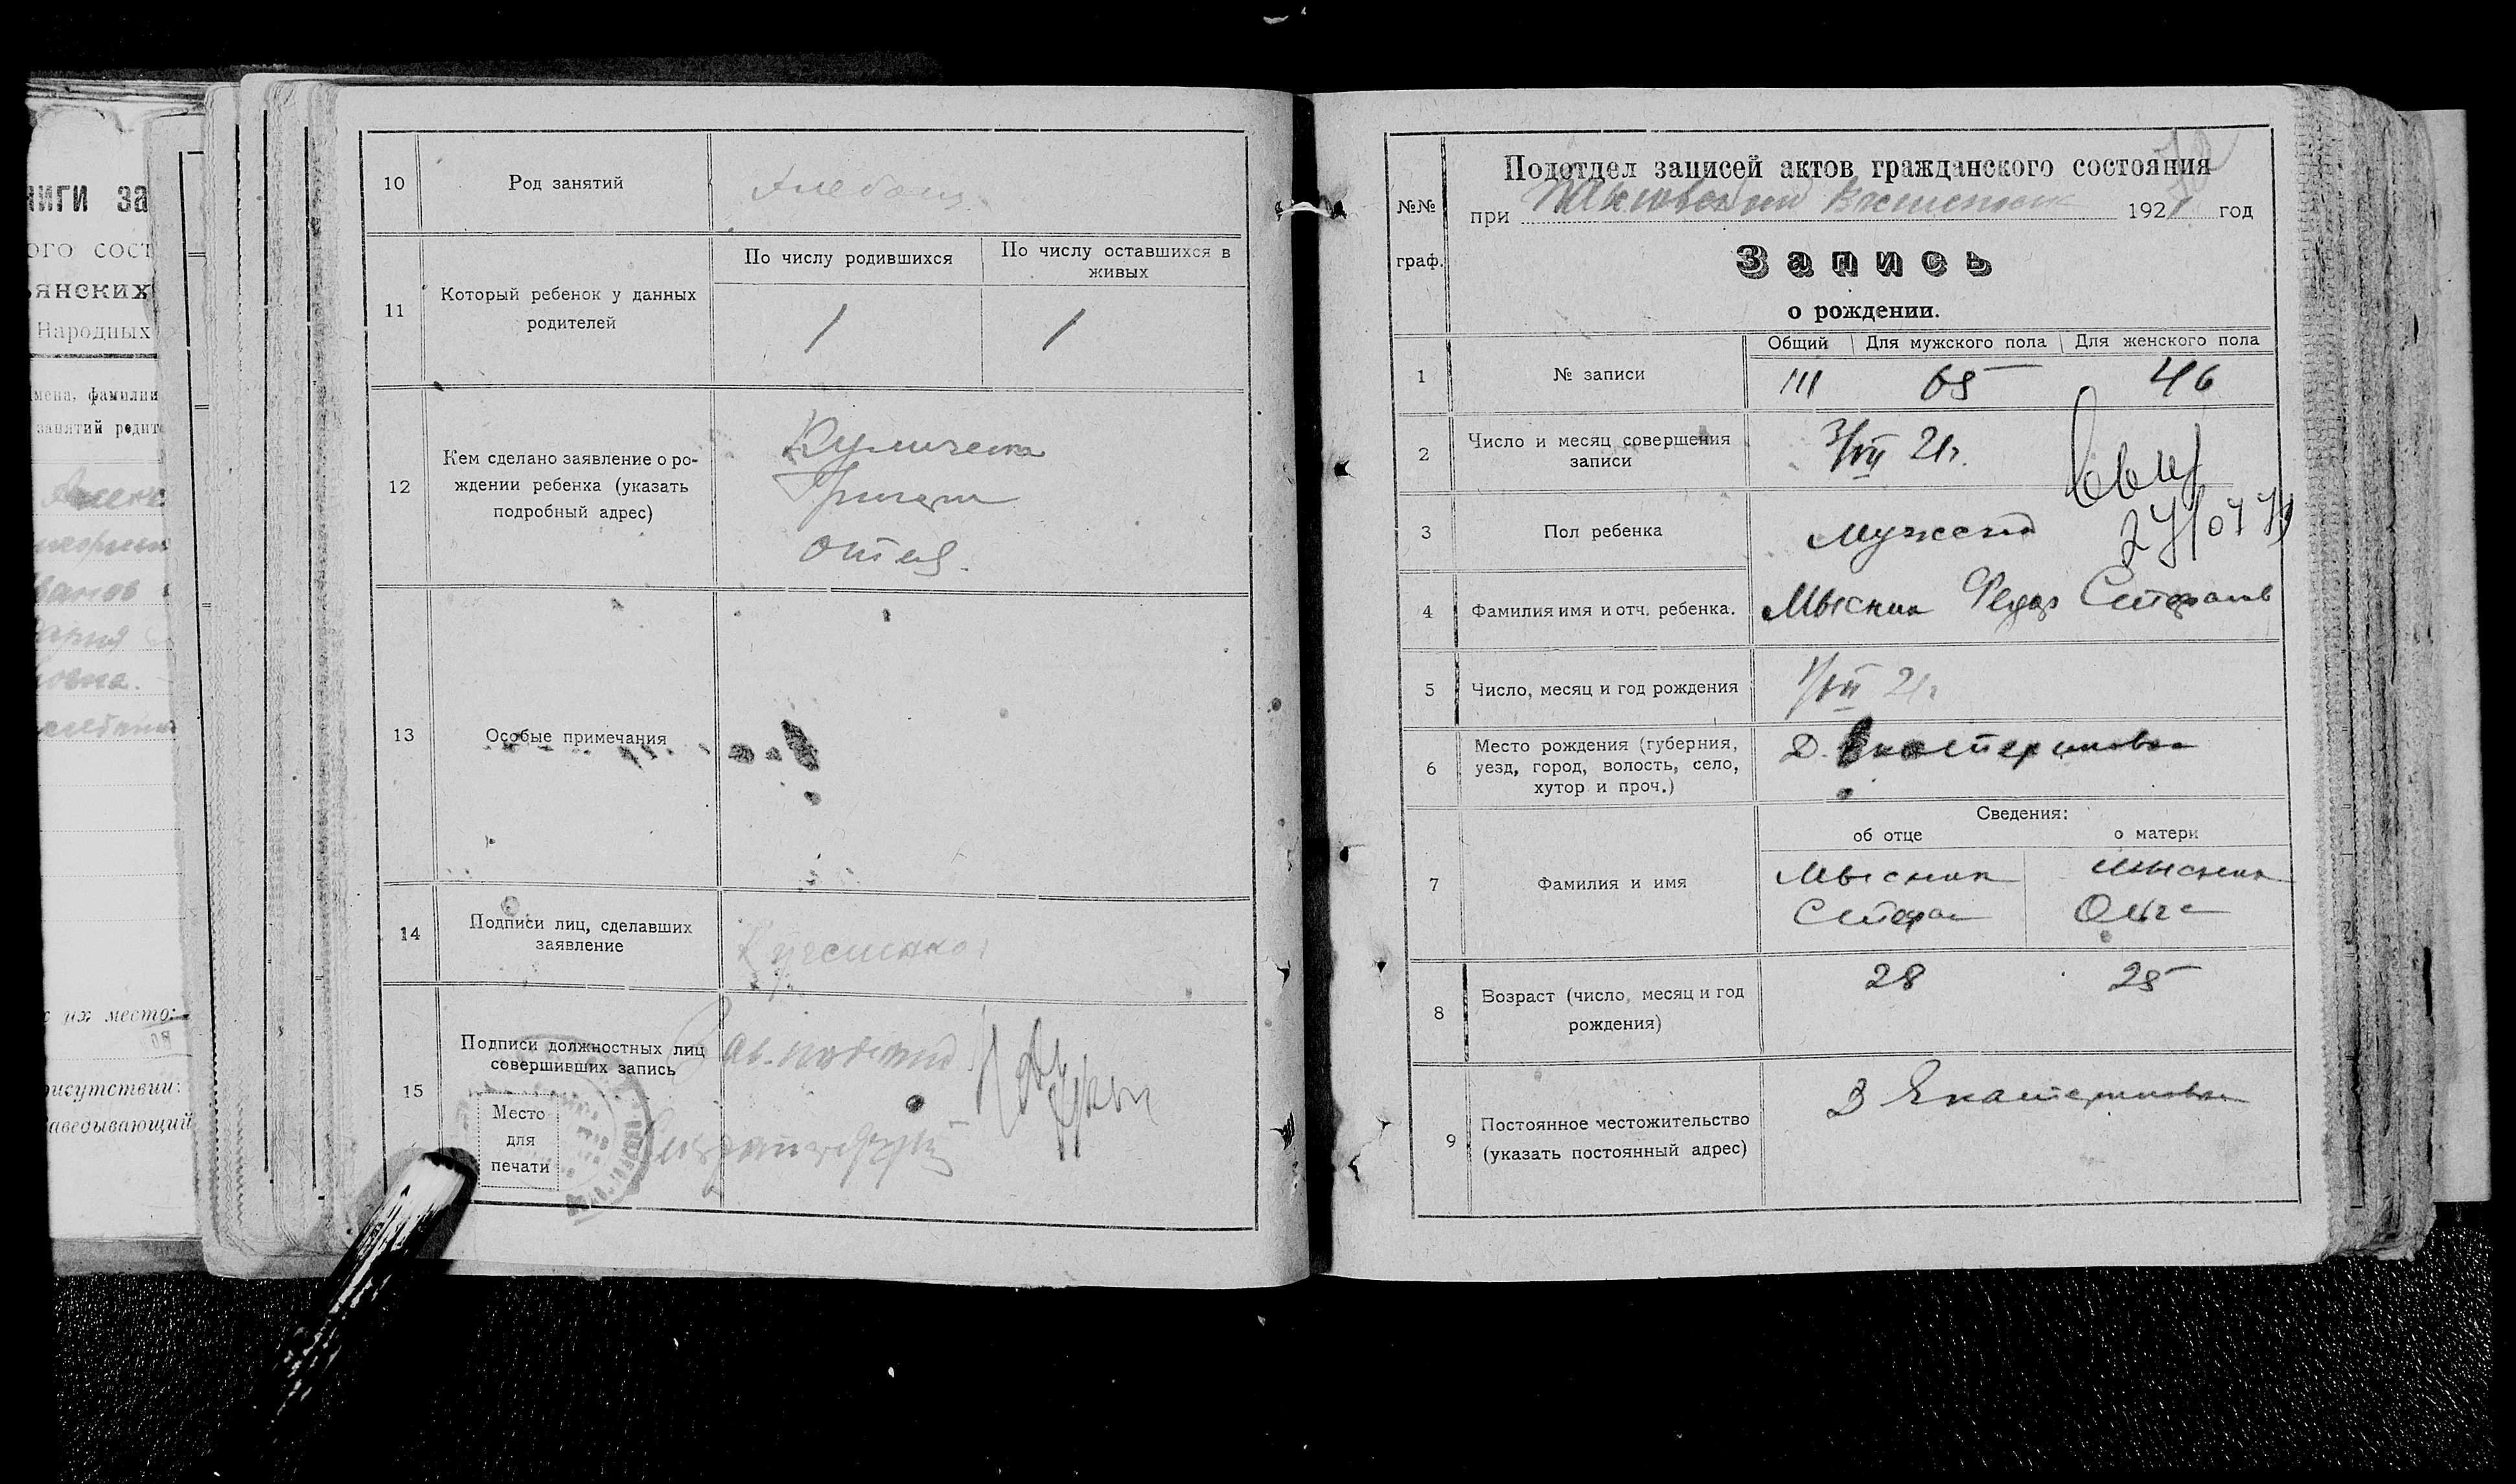 ниги за
ого сост
янских
Народных
мена, фамилии
занятий родит
ванов
их место:
рисутствии:
аведывающий
10 Род занятий Хлебопаш.
11 Который ребенок у данных родителей
По числу родившихся По числу оставшихся в живых
1 1
12 Кем сделано заявление о ро-
ждении ребенка (указать
подробный адрес)
отец.
13 Особые примечания
14 Подписи лиц, сделавших
заявление
15 Подписи должностных лиц
совершивших запись
Зав. подотд
Место
для
печати
№№
граф.
Подотдел записей актов гражданского состояния
при 1921 год
Запись
о рождении.
Общий Для мужского пола Для женского пола
1 № записи 111 65 46
2 Число и месяц совершения
записи
3/VII 21г.
3 Пол ребенка Мужской
4 Фамилия имя и отч. ребенка. Мыскин Федор Стефанов
5 Число, месяц и год рождения 1/VII 21г
6 Место рождения (губерния,
уезд, город, волость, село,
хутор и проч.)
Д. Екатериновка
Сведения:
об отце о матери
7 Фамилия и имя
Мыскин Мыскина
Стефан Ольга
8 Возраст (число, месяц и год
рождения)
28 25
9 Постоянное местожительство
(указать постоянный адрес)
Д Екатериновка